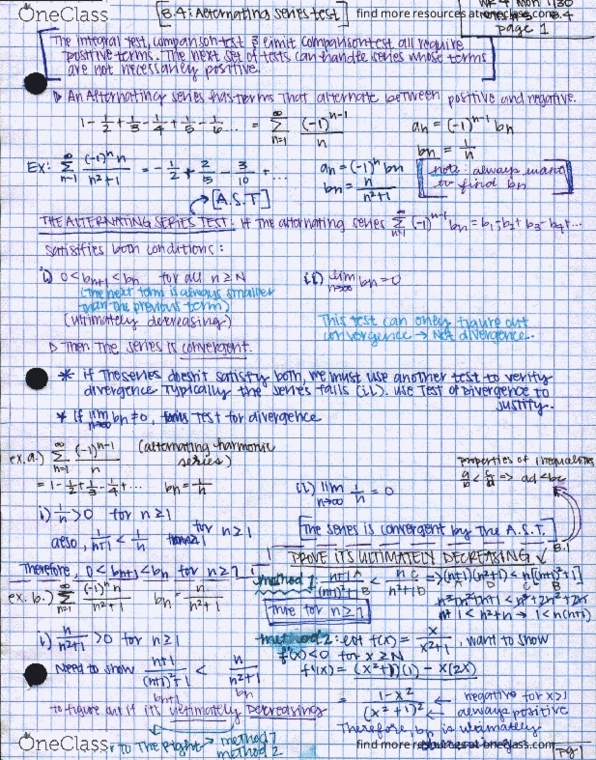 OneClass
8.4: Alternating series test
find more resources at oneclass.com
WK 4 Mon 1/30
8.4
page 1
The integral test, comparison test & limit comparison test all require
positive terms. The next set of tests can handle series whose terms
are not necessarily positive.
▷ An Alternating series has terms that alternate between positive and negative.
1 - 1/2 + 1/3 - 1/4 + 1/5 - 1/6 ... = ∑ n=1 ∞ (-1)^(n-1) / n
an = (-1)^(n-1) bn
bn = 1/n
Ex: ∑ n=1 ∞ (-1)^n n / n²+1 = -1/2 + 2/5 - 3/10 + ...
an = (-1)^n bn
bn = n / n²+1
note: always
find bn
[A.S.T]
THE ALTERNATING SERIES TEST: If the alternating series ∑ n=1 ∞ (-1)^(n-1) bn = b1 - b2 + b3 - b4 + ...
satisifies both conditions:
i) 0 < bn+1 < bn for all n ≥ N
(the next term is always smaller
than the previous term)
(ultimately decreasing)
ii) lim n→∞ bn = 0
This test can only figure out
convergence → Not divergence.
▷ Then the series is convergent.
* if the series doesn't satisfy both, we must use another test to verify
divergence Typically the series fails (ii). Use Test of Divergence to
justify.
* If lim n→∞ bn ≠ 0, Test for divergence
ex.a.) ∑ n=1 ∞ (-1)^(n-1) / n (alternating harmonic
series)
= 1 - 1/2 + 1/3 - 1/4 + ... bn = 1/n
properties of inequalities
a/b < c/d => ad < bc
i) 1/n > 0 for n ≥ 1
also, 1/n+1 < 1/n for n ≥ 1
Therefore, 0 < bn+1 < bn for n ≥ 1
(ii) lim n→∞ 1/n = 0
The series is convergent by the A.S.T.
PROVE ITS ULTIMATELY DECREASING
ex. b.) ∑ n=1 ∞ (-1)^n n / n²+1 bn = n / n²+1
method 1: n+1 A / (n+1)²+1 B < n C / n²+1 D => (n+1)(n²+1) < n[(n+1)²+1]
n³+n²+n+1 < n³+2n²+2n
1 < n²+n → 1 < n(n+1)
true for n ≥ 1
i) n / n²+1 > 0 for n ≥ 1
Need to show n+1 / (n+1)²+1 < n / n²+1
bn+1 bn
To figure out if its ultimately Decreasing
to The Right → method 1
method 2
method 2: let f(x) = x / x²+1, want to show
f'(x) < 0 for x ≥ N
f'(x) = (x²+1)(1) - x(2x)
= 1-x² / (x²+1)² ← negative for x>1
← always positive
Therefore, bn is ultimately
OneClass
find more resources at oneclass.com
pg 1